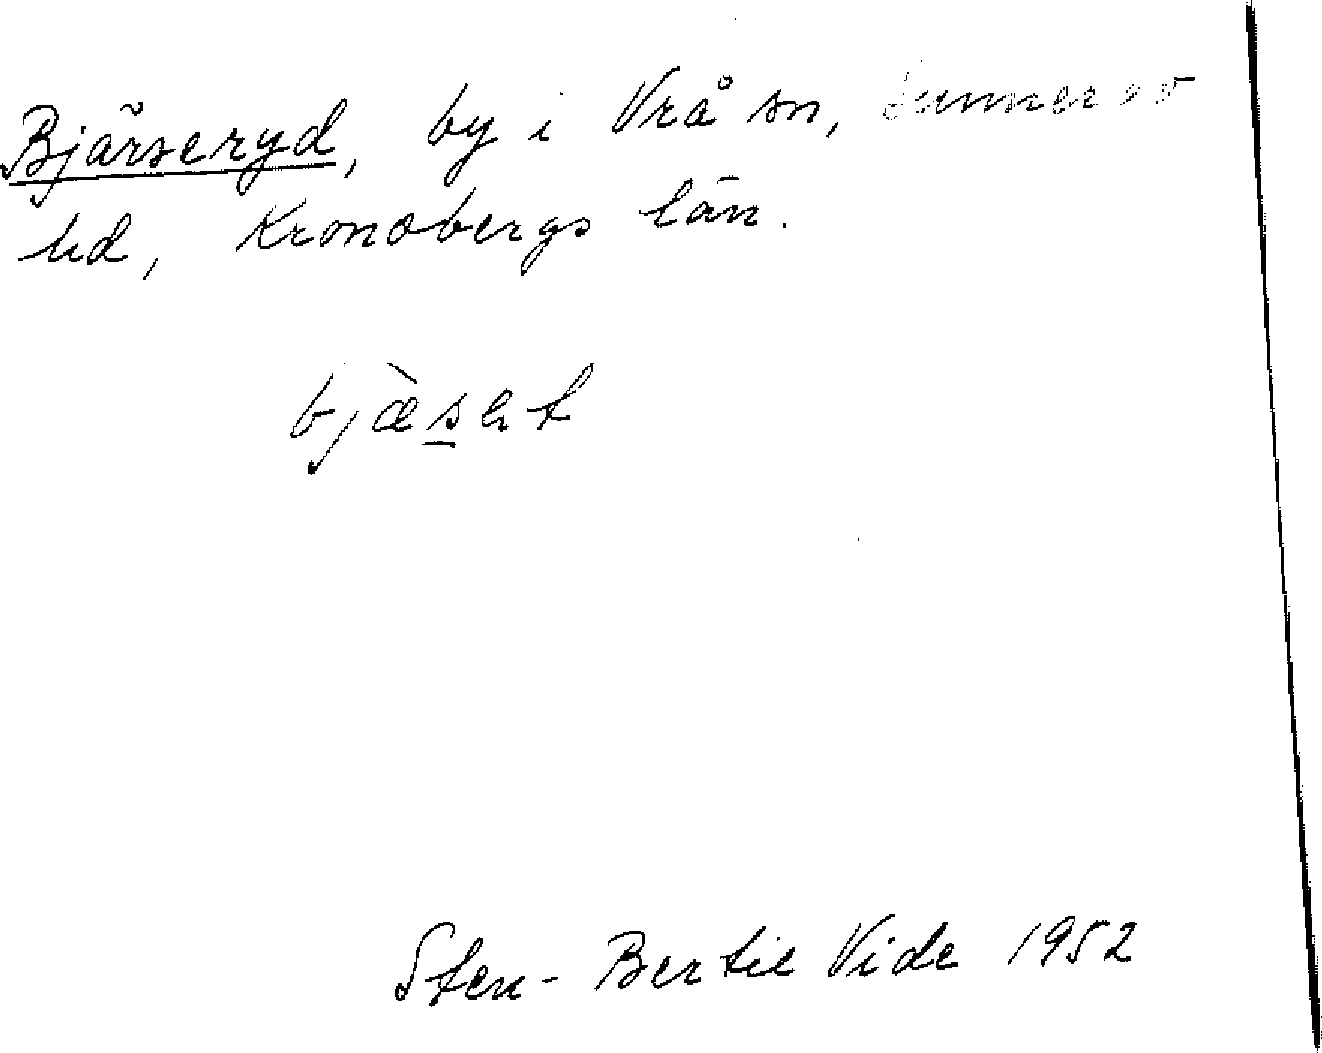 Bjärseryd, by i Vrå sn, Sunnerbo
hd, Kronobergs län.
Sten-Bertil Vide 1952